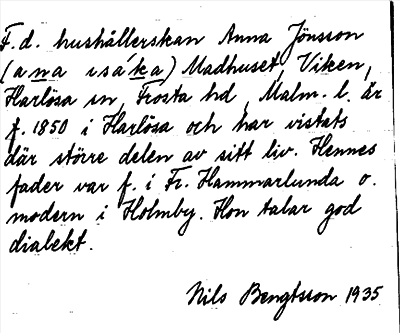 F. d. hushållerskan Anna Jönsson
(ana isáka) Madhuset, Viken,
Harlösa sn, Frosta hd, Malm. l. är
f. 1850 i Harlösa och har vistats
där större delen av sitt liv. Hennes
fader var f. i Fr. Hammarlunda o.
modern i Holmby. Hon talar god
dialekt.
Nils Bengtsson 1935